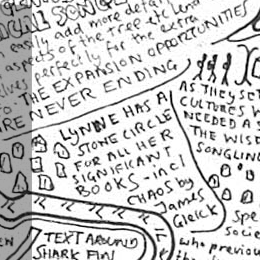 ICAL SONGLI
easily add more detail
aspects of the tree etc lend
elves perfectly for the extra
to THE EXPANSION OPPORTUNITIES
ARE NEVER ENDING
LYNNE HAS A
STONE CIRCLE
FOR ALL HER
SIGNIFICANT
BOOKS - incl
CHAOS by
James
Gleick
AS THEY SET
CULTURES W
NEEDED A S
THE WISD
SONGLIN
Spe
socie
who previou
TEXT AROUND
SHARK FIN